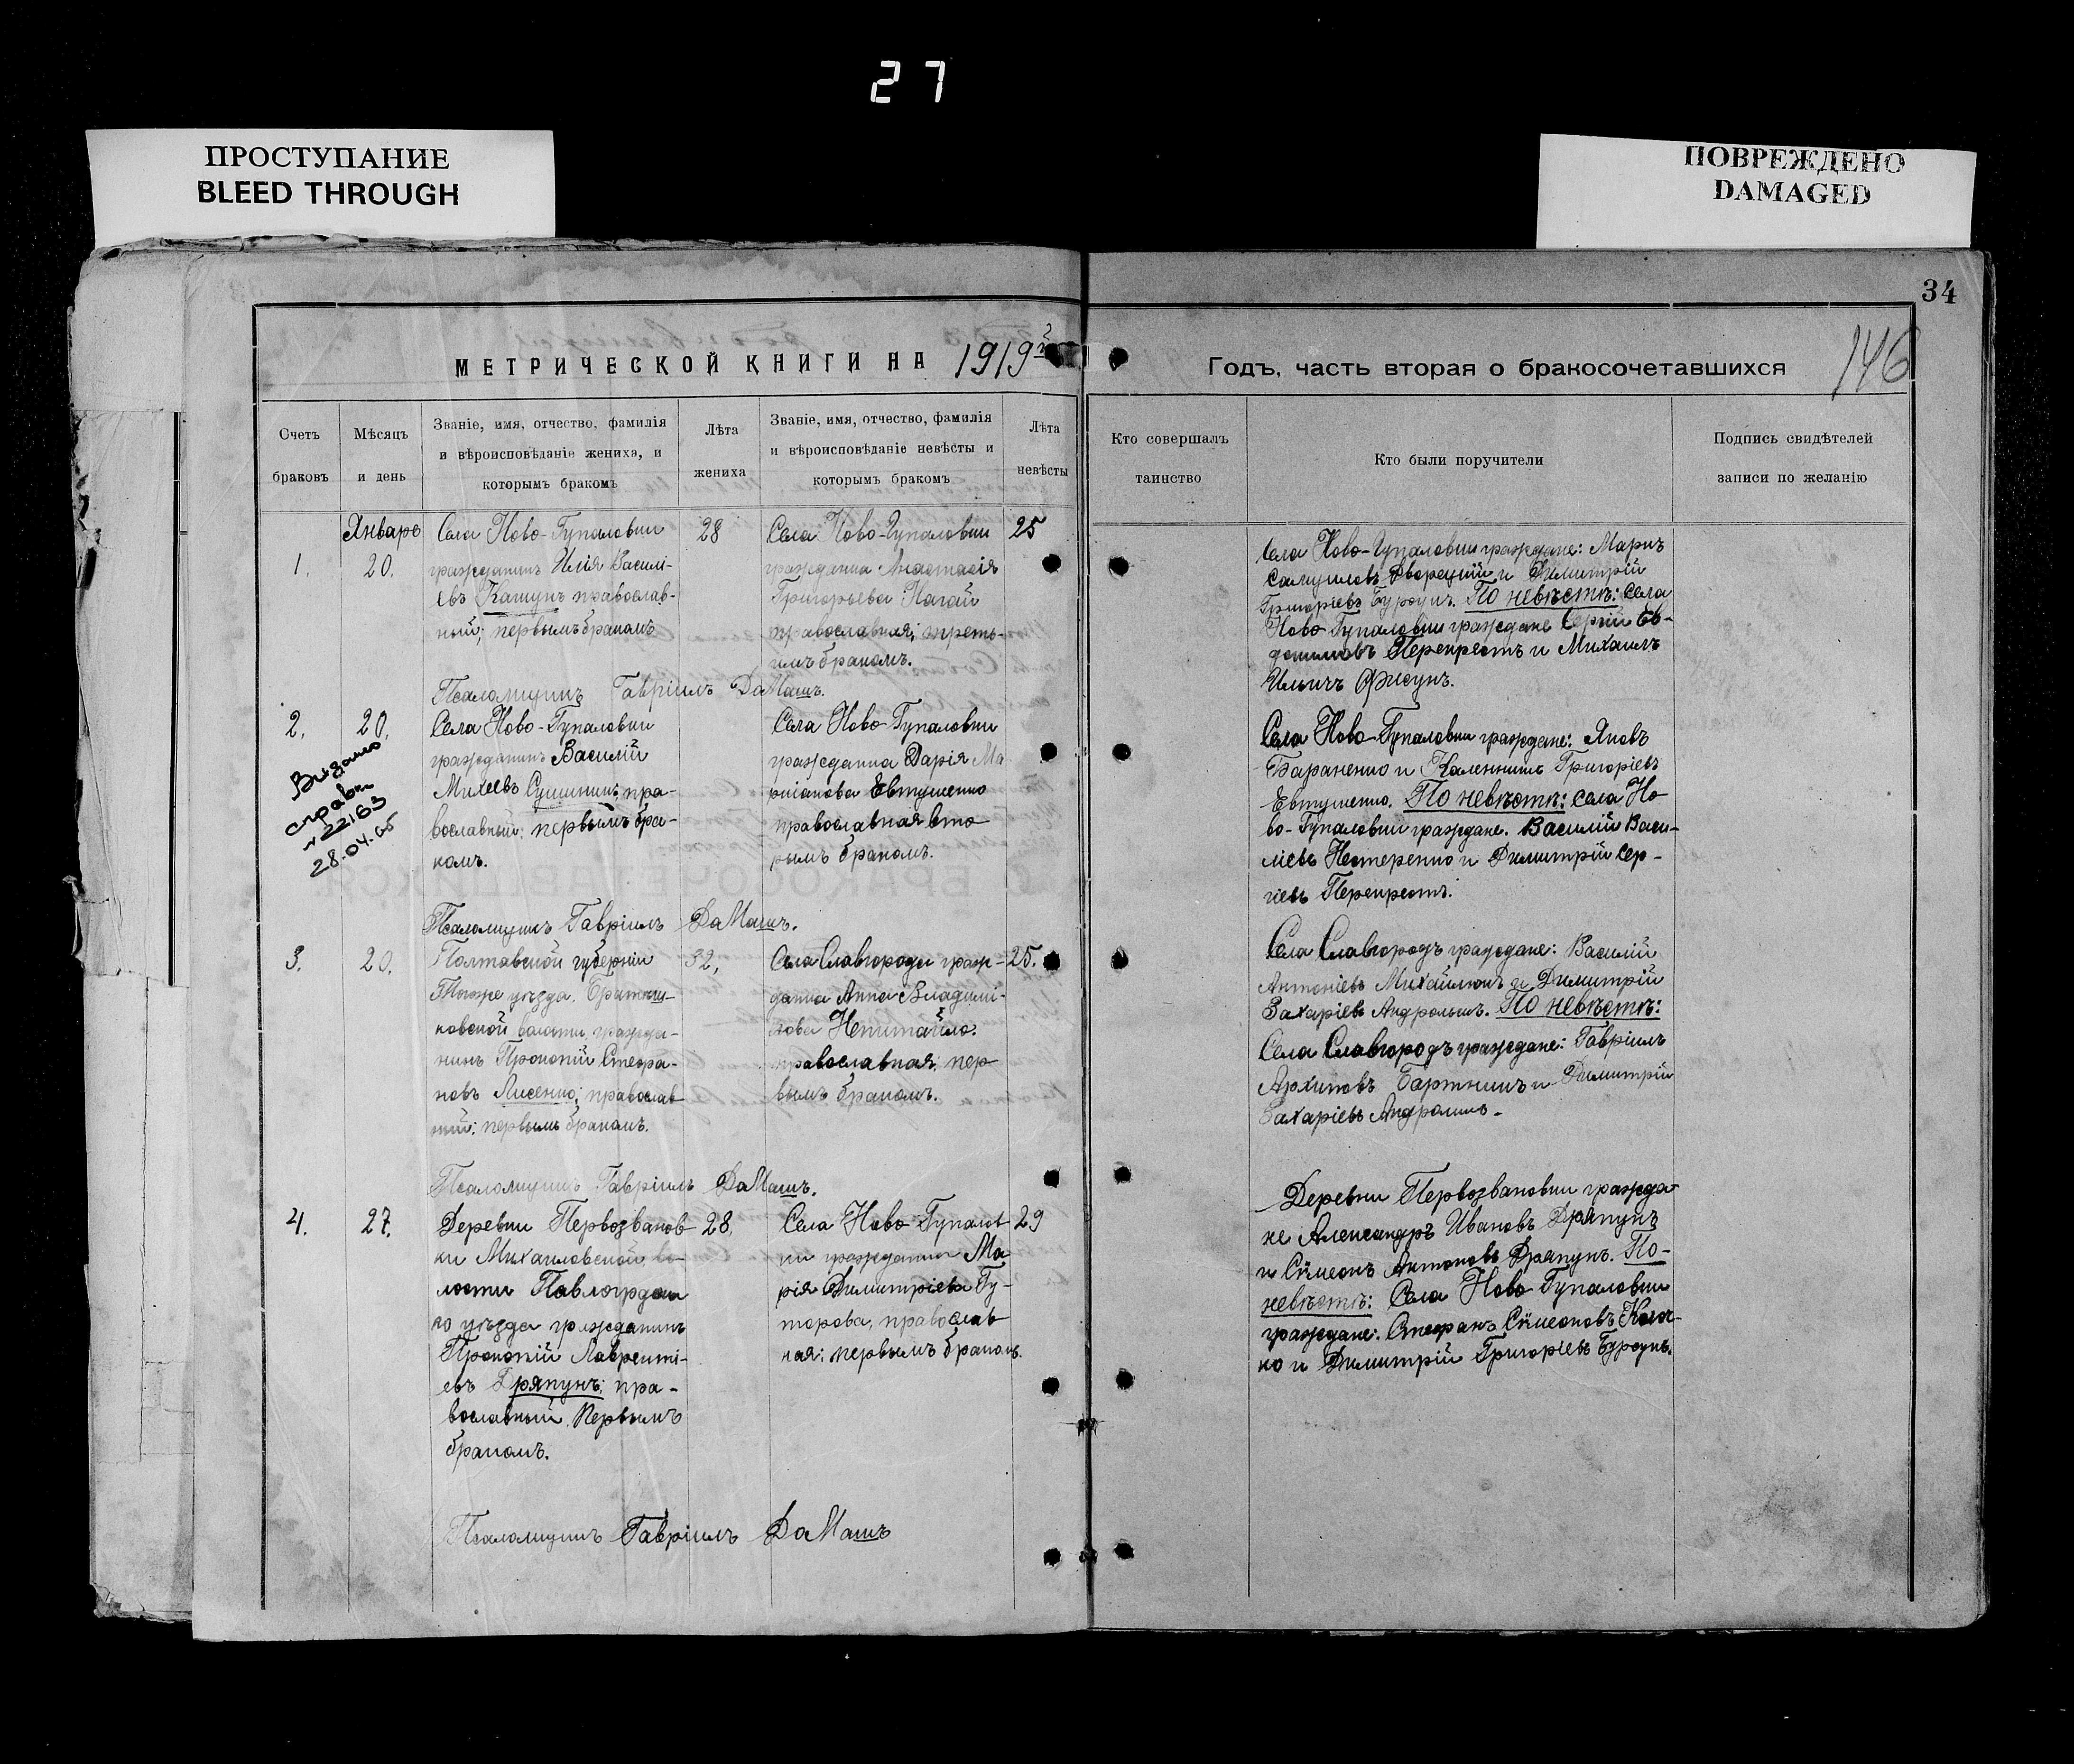 27
ПРОСТУПАНИЕ
BLEED THROUGH
ПОВРЕЖДЕНО
DAMAGED
34
146
МЕТРИЧЕСКОЙ КНИГИ НА 1919й
Годъ, часть вторая о бракосочетавшихся
Счетъ браковъ
Мѣсяцъ и день
Званіе, имя, отчество, фамилія
и вѣроисповѣданіе жениха, и
которымъ бракомъ
Лѣта жениха
Званіе, имя, отчество, фамилія
и вѣроисповѣданіе невѣсты и
которымъ бракомъ
Лѣта невѣсты
Кто совершалъ таинство
Кто были поручители
Подпись свидѣтелей
записи по желанію
Январь
1.
20.
Села Ново-Гупаловки
гражданинъ Илія Василі-
евъ Кашунъ православ-
ный; первымъ бракомъ
28
Села Ново-Гупаловки
гражданка Анастасія
Григорьева Нагай
православная; треть-
имъ бракомъ.
25
Села Ново-Гупаловки граждане: Маркъ
Самуиловъ Дворецкій и Димитрій
Григоріевъ Бурсукъ. По невѣстѣ: Села
Ново-Гупаловки граждане Сергій Ев-
докимовъ Перекрестъ и Михаилъ
Ильичъ Фисунъ.
Псаломщикъ Гавріилъ ДаМашъ.
2.
20.
Видано
справк
№22163
28.04.
Села Ново-Гупаловки
гражданинъ Василій
Михеевъ Сушининъ; пра-
вославный; первымъ бра-
комъ.
Села Ново-Гупаловки
гражданка Дарія Ма
ркіанова Евтушенко
православная вто
рымъ бракомъ.
Села Ново-Гупаловки граждане: Яковъ
Бараненко и Каленникъ Григоріевъ
Евтушенко. По невѣстѣ: села Но
во-Гупаловки граждане. Василій Васи-
ліевъ Нестеренко и Димитрій Сер-
гіевъ Перекрестъ.
Псаломщикъ Гавріилъ ДаМашъ.
3.
20.
Полтавской губерніи
Тогоже уѣзда.
ковской волости, гражда-
нинъ Прокопій Стефа-
новъ Лисенко; православ
ный; первымъ бракомъ.
32,
Села Славгорода граж-
данка Анна Владимі-
рова Непитайло.
православная; пер
вымъ бракомъ.
25.
Села Славгородъ граждане: Василій
Антоніевъ Михайлюкъ и Димитрій
Захаріевъ Андрющ. По невѣстѣ:
Села Славгородъ граждане: Гавріилъ
Архиповъ и Димитрій
Захаріевъ
Псаломщикъ Гавріилъ ДаМашъ.
4.
27.
Деревни Первозванов
ки Михайловской во-
лости Павлоградска
го уѣзда гражданинъ
Прокопій Лавренті-
евъ Дряпунъ; пра-
вославный. Первымъ
бракомъ.
28.
Села Ново Гупалов
ки гражданка Ма
рія Димитріева Гу-
торова, православ
ная; первымъ бракомъ.
29
Деревни Первозвановки гражда-
не Александръ Ивановъ Дряпунъ
и Сѵмеонъ Антоновъ Дряпунъ. По-
невѣстѣ: Села Ново Гупаловки
граждане. Стефанъ Сѵмеоновъ
и Димитрій Григоріевъ Бурсукъ.
Псаломщикъ Гавріилъ ДаМашъ